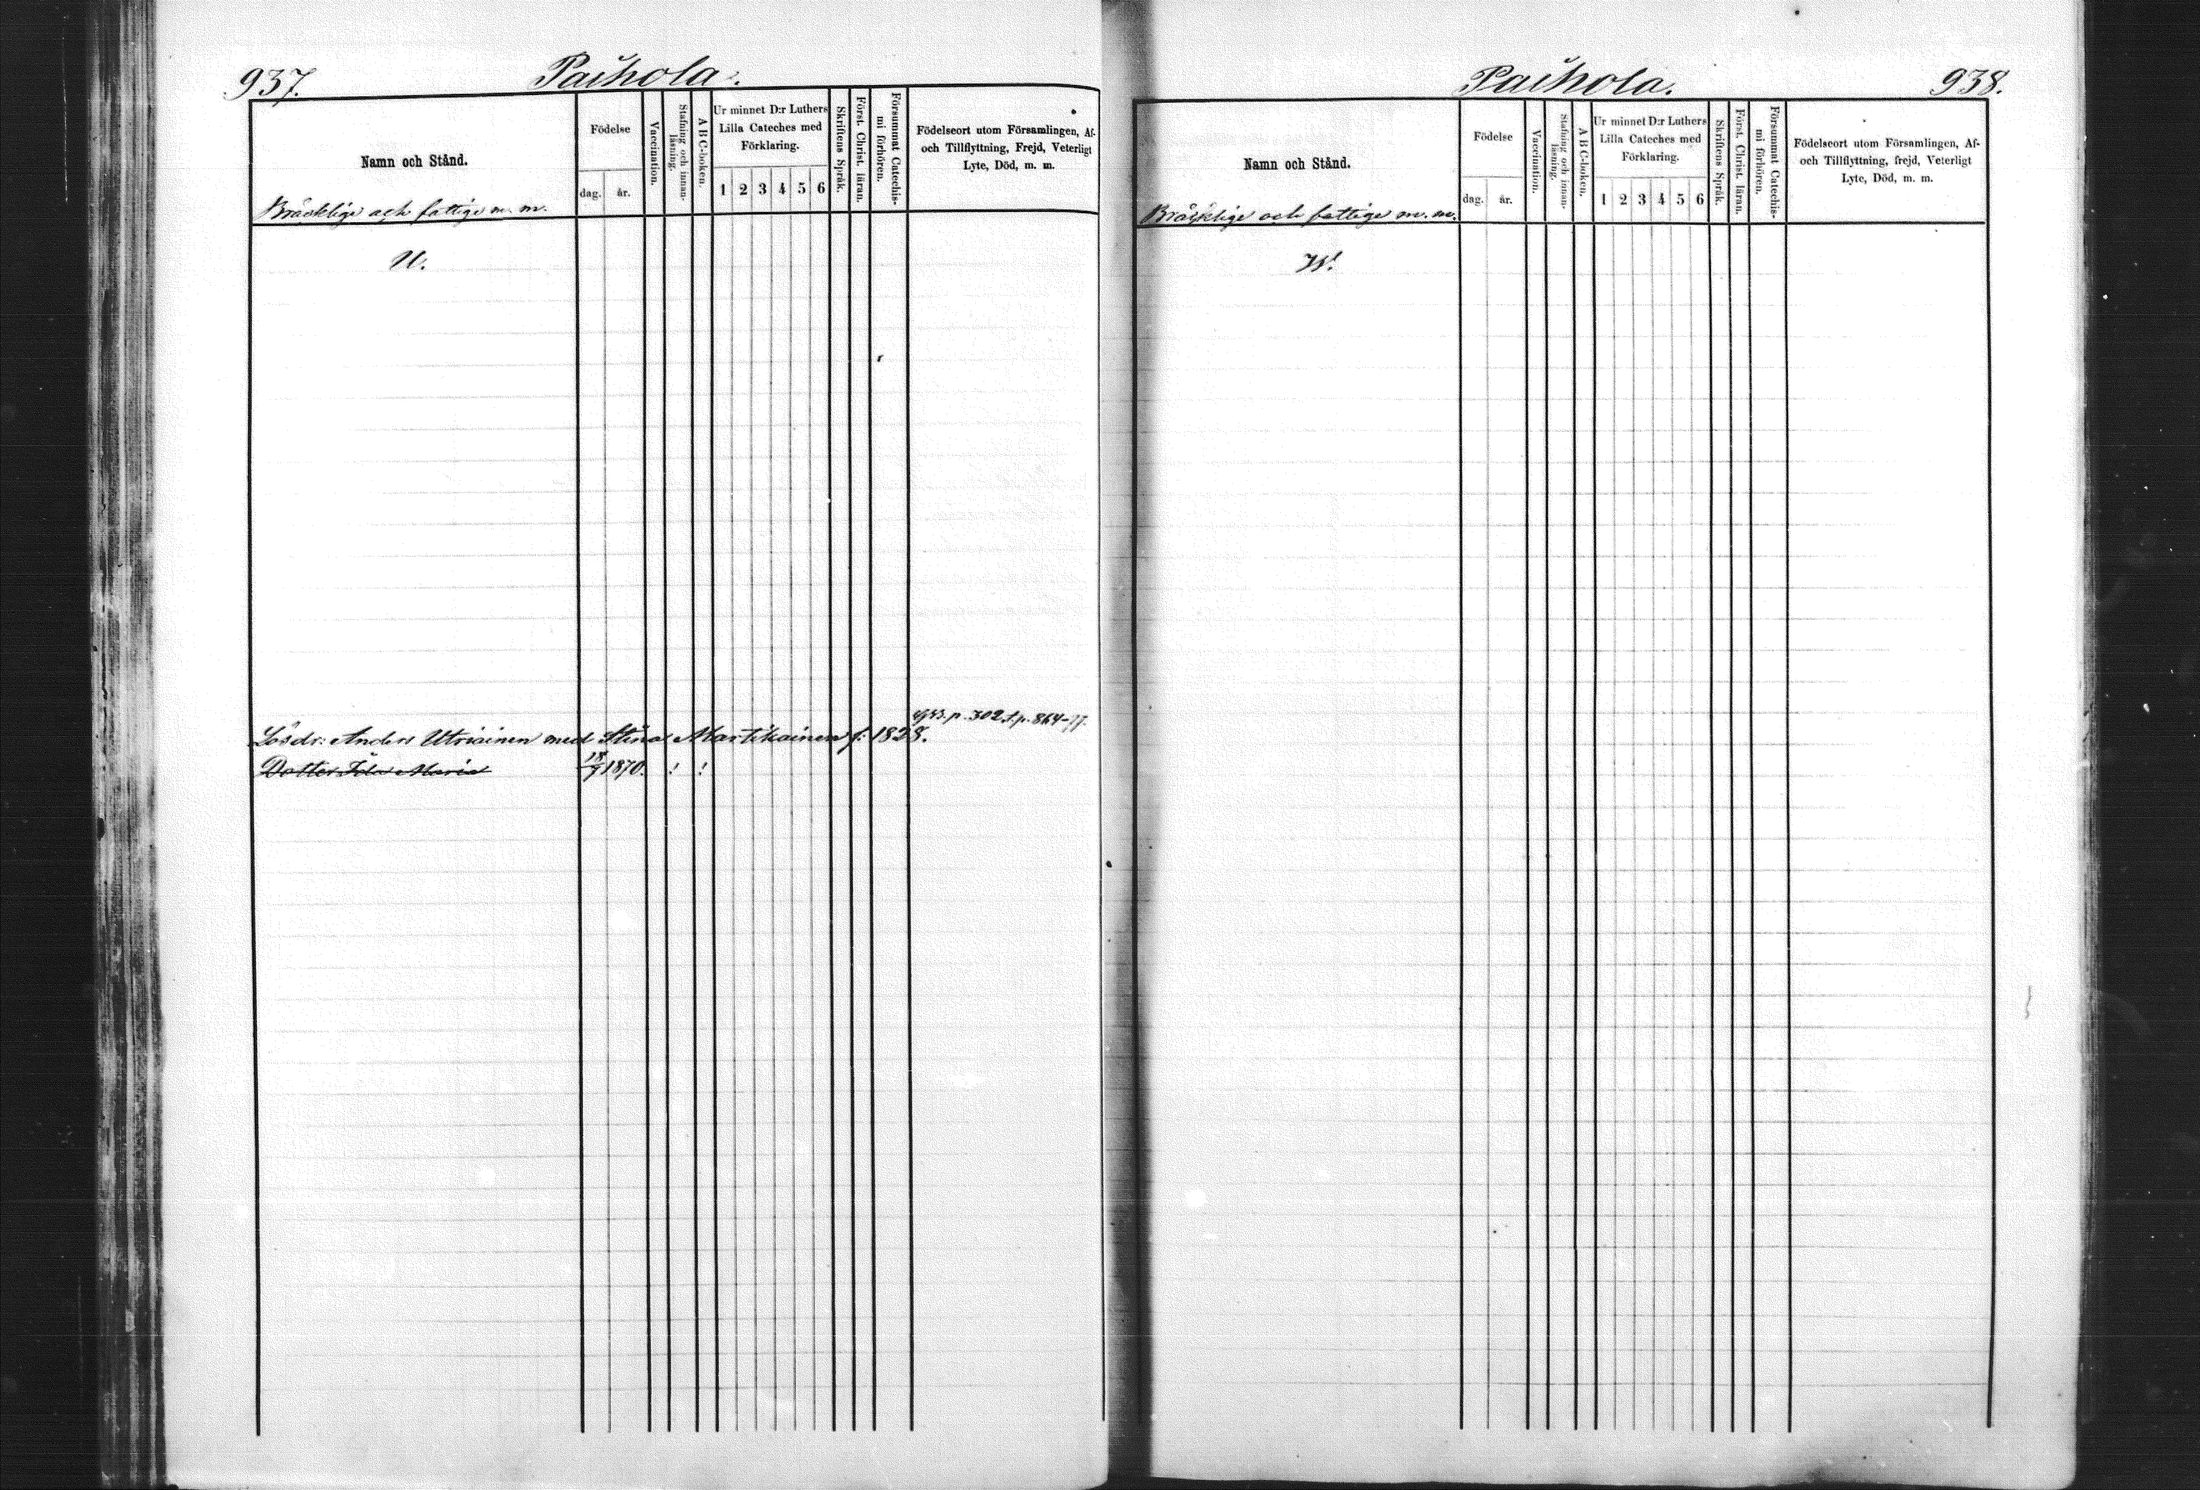 937. Paihola.
Namn och Stånd.
Bräcklige och fattige m. m.
Födelse
dag. år.
Vaccination.
Stafning och innan-
läsning.
A B C-boken.
Ur minnet D:r Luthers
Lilla Cateches med
Förklaring.
1 2 3 4 5 6
Skriftens Språk.
Först. Christ. läran.
Försummat Catechis-
mi förhören.
Födelseort utom Församlingen, Af-
och Tillflyttning, Frejd, Veterligt
Lyte, Död, m. m.
U.
p. 302 f. p. 864-77.
Lösdr: Anders Utriainen med Stina Martikainen f: 1828.
Dotter Ida Maria 18/9 1870. ! !
Paihola. 938.
Namn och Stånd.
Bräcklige och fattige m. m.
Födelse
dag. år.
Vaccination.
Stafning och innan-
läsning.
A B C-boken.
Ur minnet D:r Luthers
Lilla Cateches med
Förklaring.
1 2 3 4 5 6
Skriftens Språk.
Först. Christ. läran.
Försummat Catechis-
mi förhören.
Födelseort utom Församlingen, Af-
och Tillflyttning, frejd, Veterligt
Lyte, Död, m. m.
W.